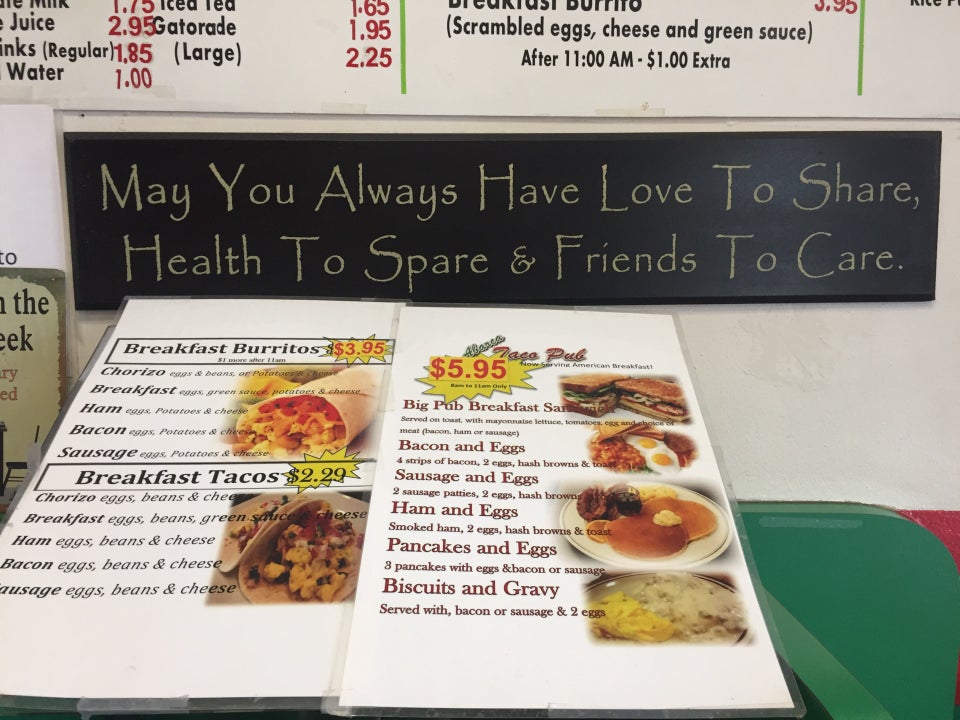 Milk 1.75 Iced Tea 1.65
Juice 2.95 Gatorade 1.95
(Regular) 1.85 (Large) 2.25
Water 1.00
Breakfast Burrito 3.95
(Scrambled eggs, cheese and green sauce)
After 11:00 AM - $1.00 Extra
Rice
May You Always Have Love To Share,
Health To Spare & Friends To Care.
to
the
Breakfast Burritos $3.95
$1 more after 11am
Chorizo eggs & beans, or Potatoes & cheese
Breakfast eggs, green sauce, potatoes & cheese
Ham eggs, Potatoes & cheese
Bacon eggs, Potatoes & cheese
Sausage eggs, Potatoes & cheese
Breakfast Tacos $2.29
Chorizo eggs, beans & cheese
Breakfast eggs, beans, green sauce & cheese
Ham eggs, beans & cheese
Bacon eggs, beans & cheese
ausage eggs, beans & cheese
Taco Pub
Now Serving American Breakfast!
$5.95
8am to 11am Only
Big Pub Breakfast Sandwich
Served on toast, with mayonnaise lettuce, tomatoes, egg and choice of
meat (bacon, ham or sausage)
Bacon and Eggs
4 strips of bacon, 2 eggs, hash browns & toast
Sausage and Eggs
2 sausage patties, 2 eggs, hash browns
Ham and Eggs
Smoked ham, 2 eggs, hash browns & toast
Pancakes and Eggs
3 pancakes with eggs &bacon or sausage
Biscuits and Gravy
Served with, bacon or sausage & 2 eggs